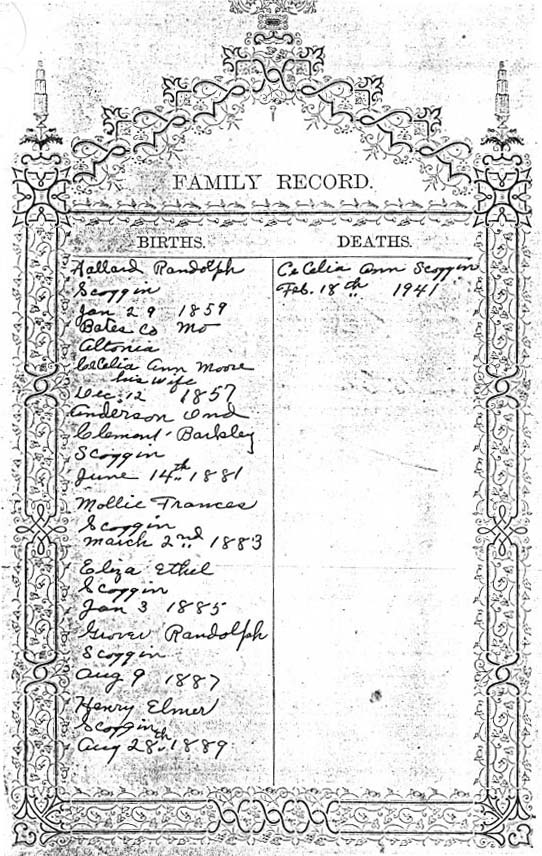 FAMILY RECORD.
BIRTHS.
Hallard Randolph
Scoggin
Jan 29 1859
Bates Co Mo
Altonia
CeCelia Ann Moore
his wife
Dec. 12 1857
Anderson And
Clement Barkley
Scoggin
June 14th 1881
Mollie Frances
Scoggin
March 2nd 1883
Eliza Ethel
Scoggin
Jan 3 1885
Grover Randolph
Scoggin
Aug 9 1887
Henry Elmer
Scoggin
Aug 28th 1889
DEATHS.
CeCelia Ann Scoggin
Feb. 18th 1941